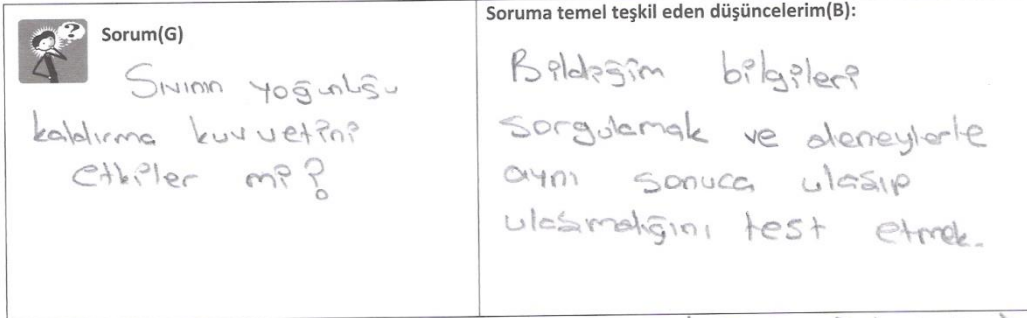 Sorum(G)
Sıvının yoğunluğu
kaldırma kuvvetini
etkiler mi?
Soruma temel teşkil eden düşüncelerim(B):
Bildiğim bilgileri
sorgulamak ve deneylerle
aynı sonuca ulaşıp
ulaşmadığını test etmek.